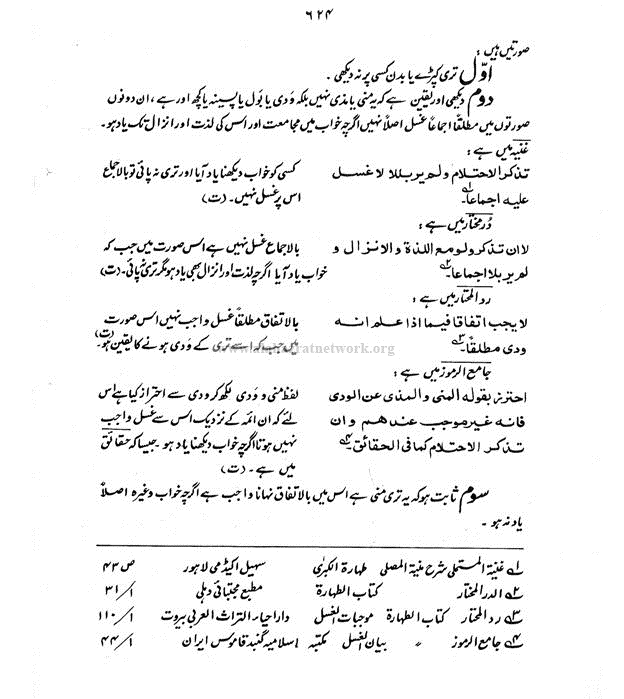 ۶۲۴
صورتیں ہیں :
اوّل تری کپڑے یا بدن کسی پر نہ دیکھی ۔
دوم دیکھی اور یقین ہے کہ یہ منی یا مذی نہیں بلکہ ودی یا بول یا پسینہ یا کچھ اور ہے ، ان دونوں
صورتوں میں مطلقًا اجماعًا غسل اصلًا نہیں اگرچہ خواب میں مجامعت اور اس کی لذت اور انزال تک یاد ہو۔
غنیہ میں ہے :
تذکر الاحتلام ولم یر بللا لا غسل
علیہ اجماعا۱؎
کسی کو خواب دیکھنا یاد آیا اور تری نہ پائی تو بالاجماع
اس پر غسل نہیں ۔ (ت)
درمختار میں ہے :
لا ان تذکر ولو مع اللذۃ والانزال و
لم یر بللا اجماعا۲؎
بالاجماع غسل نہیں ہے اس صورت میں جب کہ
خواب یاد آیا اگرچہ لذت اور انزال بھی یاد ہو مگر تری نہ پائی۔ (ت)
ردالمحتار میں ہے :
لا یجب اتفاقا فیما اذا علم انہ
ودی مطلقا۳؎
بالاتفاق مطلقًا غسل واجب نہیں اس صورت
میں جب کہ اسے تری کے ودی ہونے کا یقین ہو۔ (ت)
جامع الرموز میں ہے :
احترز بقولہ المنی والمذی عن الودی
فانہ غیر موجب عندھم وان
تذکر الاحتلام کما فی الحقائق۴؎
لفظ منی و ودی لکھ کر ودی سے احتراز کیا ہے اس
لئے کہ ان ائمہ کے نزدیک اس سے غسل واجب
نہیں ہوتا اگرچہ خواب دیکھنا یاد ہو ۔ جیسا کہ حقائق
میں ہے ۔ (ت)
سوم ثابت ہو کہ یہ تری منی ہے اس میں بالاتفاق نہانا واجب ہے اگرچہ خواب وغیرہ اصلًا
یاد نہ ہو ۔
۱؎ غنیۃ المستملی شرح منیۃ المصلی طہارۃ الکبرٰی سہیل اکیڈمی لاہور ص ۴۳
۲؎ الدرالمختار کتاب الطہارۃ مطبع مجتبائی دہلی ۱/ ۳۱
۳؎ ردالمحتار کتاب الطہارۃ موجبات الغسل داراحیاء التراث العربی بیروت ۱/ ۱۱۰
۴؎ جامع الرموز ״ بیان الغسل مکتبہ اسلامیہ گنبد قاموس ایران ۱/ ۴۴